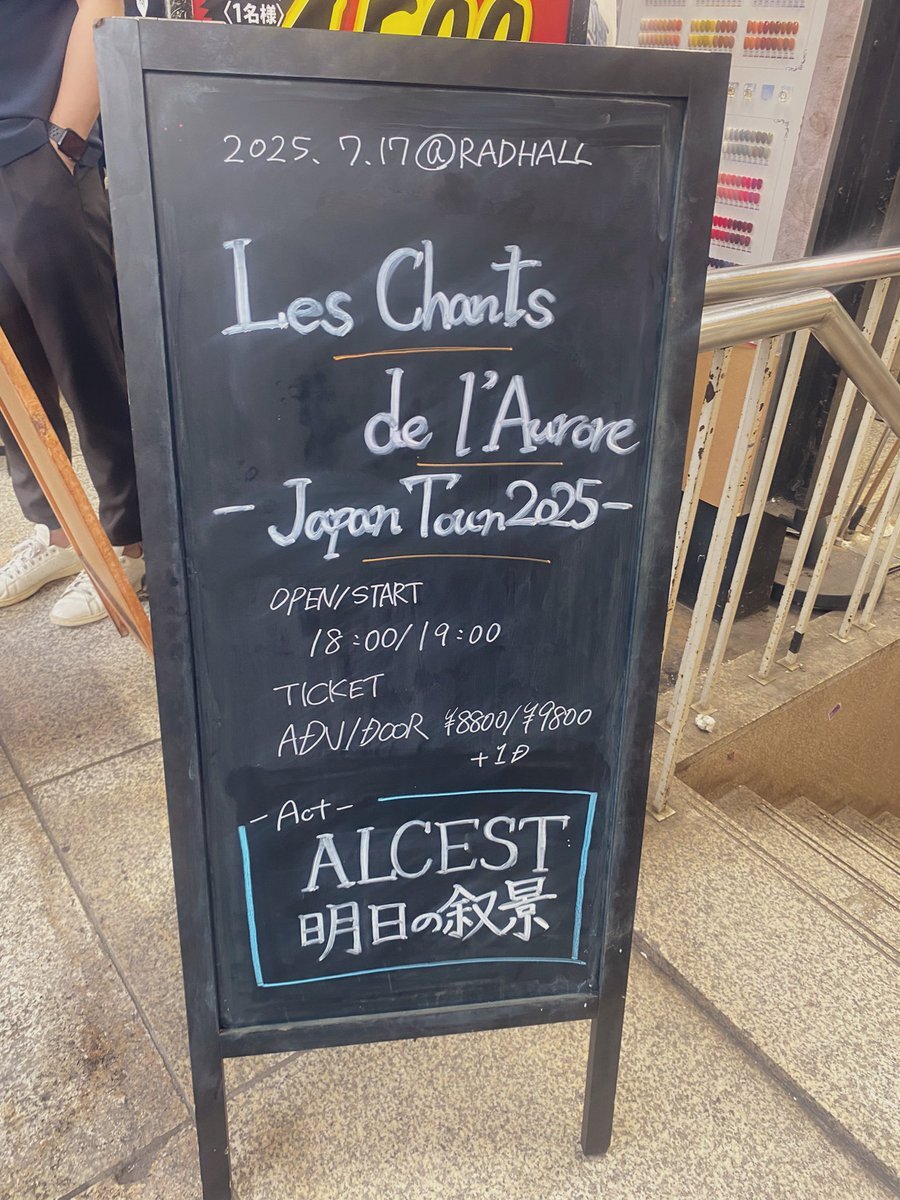 〈1名様〉
2025. 7.17@RADHALL
Les Chants
de l'Aurore
- Japan Tour 2025 -
OPEN/START
18:00/19:00
TICKET
ADV/DOOR ¥8800/¥9800
+1D
- Act -
ALCEST
明日の叙景